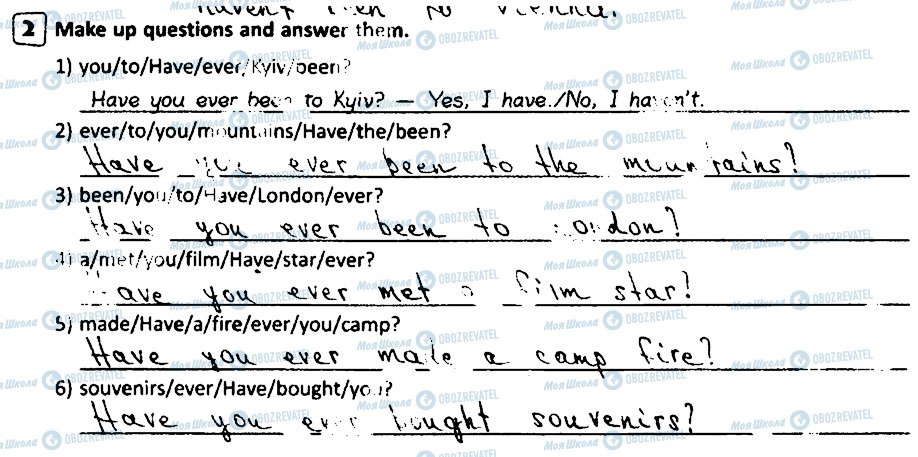 haven't been to
2 Make up questions and answer them.
1) you/to/Have/ever/Kyiv/been?
Have you ever been to Kyiv? – Yes, I have./No, I haven't.
2) ever/to/you/mountains/Have/the/been?
Have you ever been to the mountains?
3) been/you/to/Have/London/ever?
Have you ever been to London?
4) a/met/you/film/Have/star/ever?
Have you ever met a film star?
5) made/Have/a/fire/ever/you/camp?
Have you ever made a camp fire?
6) souvenirs/ever/Have/bought/you?
Have you ever bought souvenirs?
Моя Школа OBOZREVATEL